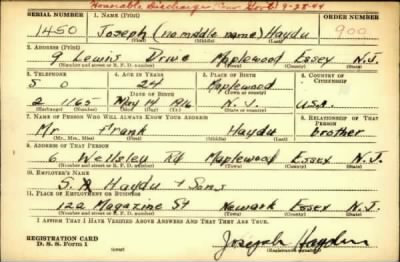 Honorable Discharge, Conv Govt 9-28-44
SERIAL NUMBER 1. NAME (Print) ORDER NUMBER
1450 Joseph (no middle name) Haydu 900
(First) (Middle) (Last)
2. ADDRESS (Print)
9 Lewis Drive Maplewood Essex N.J.
(Number and street or R. F. D. number) (Town) (County) (State)
3. TELEPHONE 4. AGE IN YEARS 5. PLACE OF BIRTH 6. COUNTRY OF CITIZENSHIP
S O 24 Maplewood
DATE OF BIRTH (Town or county)
2 1165 May 14 1916 N.J. U.S.A.
(Exchange) (Number) (Mo.) (Day) (Yr.) (State or country)
7. NAME OF PERSON WHO WILL ALWAYS KNOW YOUR ADDRESS 8. RELATIONSHIP OF THAT PERSON
Mr Frank Haydu brother
(Mr., Mrs., Miss) (First) (Middle) (Last)
9. ADDRESS OF THAT PERSON
6 Wellsley Rd Maplewood Essex N.J.
(Number and street or R. F. D. number) (Town) (County) (State)
10. EMPLOYER'S NAME
S. Haydu + Sons
11. PLACE OF EMPLOYMENT OR BUSINESS
122 Magazine St Newark Essex N.J.
(Number and street or R. F. D. number) (Town) (County) (State)
I AFFIRM THAT I HAVE VERIFIED ABOVE ANSWERS AND THAT THEY ARE TRUE.
REGISTRATION CARD
D. S. S. Form 1
Joseph Haydu
(Registrant's signature)